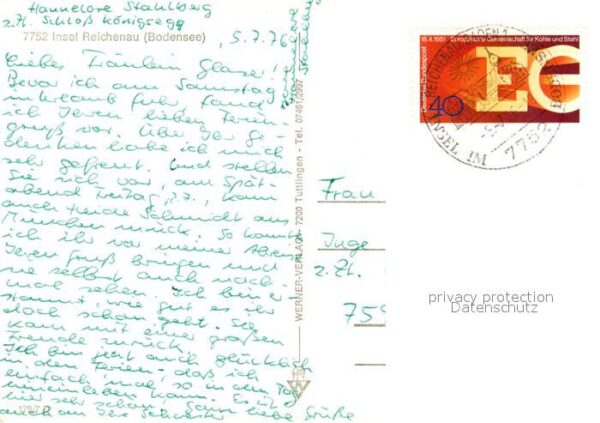 Hannelore Stahlberg
z. Zt. Schloß Königsegg
7752 Insel Reichenau (Bodensee)
5.7.76
Liebes Fräulein Glaser!
Bevor ich am Samstag
in Urlaub fuhr fand
ich Ihren lieben Ferien-
gruß vor. Über Ihr Ge-
denken habe ich mich
sehr gefreut. Und stellen
Sie sich vor, am Spät-
abend Freitag, 2.7., kam
auch Heide Schmidt aus
München zurück. So konnte
ich ihr vor meiner Abreise
Ihren Gruß bringen und
sie selbst auch noch-
mal sehen. Ich bin er-
staunt, wie gut es ihr
doch schon geht. Sie
kam mit einer großen
Freude zurück.
Ich bin jetzt auch glücklich
in den Ferien, daß ich
einfach mal so in den Tag
hineinleben kann. Es ist
hier sehr schön. Ganz
auch an Ihre Schwester liebe Grüße
179/7
WERNER-VERLAG · 7200 Tuttlingen - Tel. 07461/2997
18.4.1951 Europäische Gemeinschaft für Kohle und Stahl
Deutsche Bundespost
40
EG
INSEL IM
7752
Frau
Inge
z. Zt.
759
privacy protection
Datenschutz